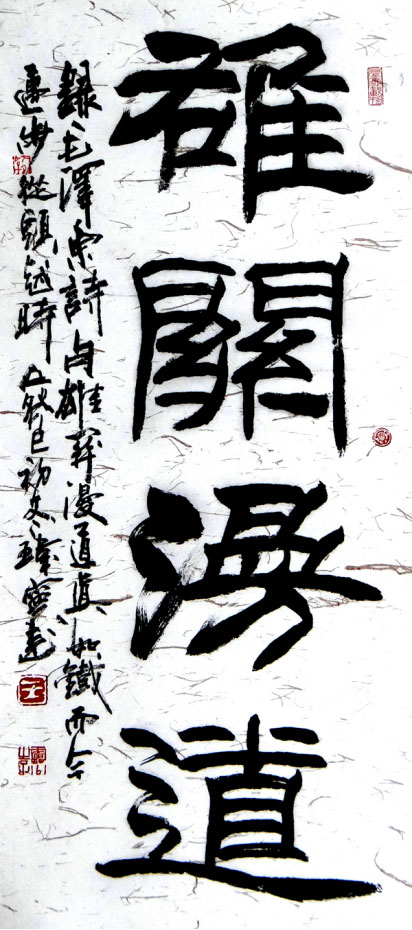 雄關漫道
錄毛澤東詩句雄關漫道真如鐵而今
邁步從頭越時巳初